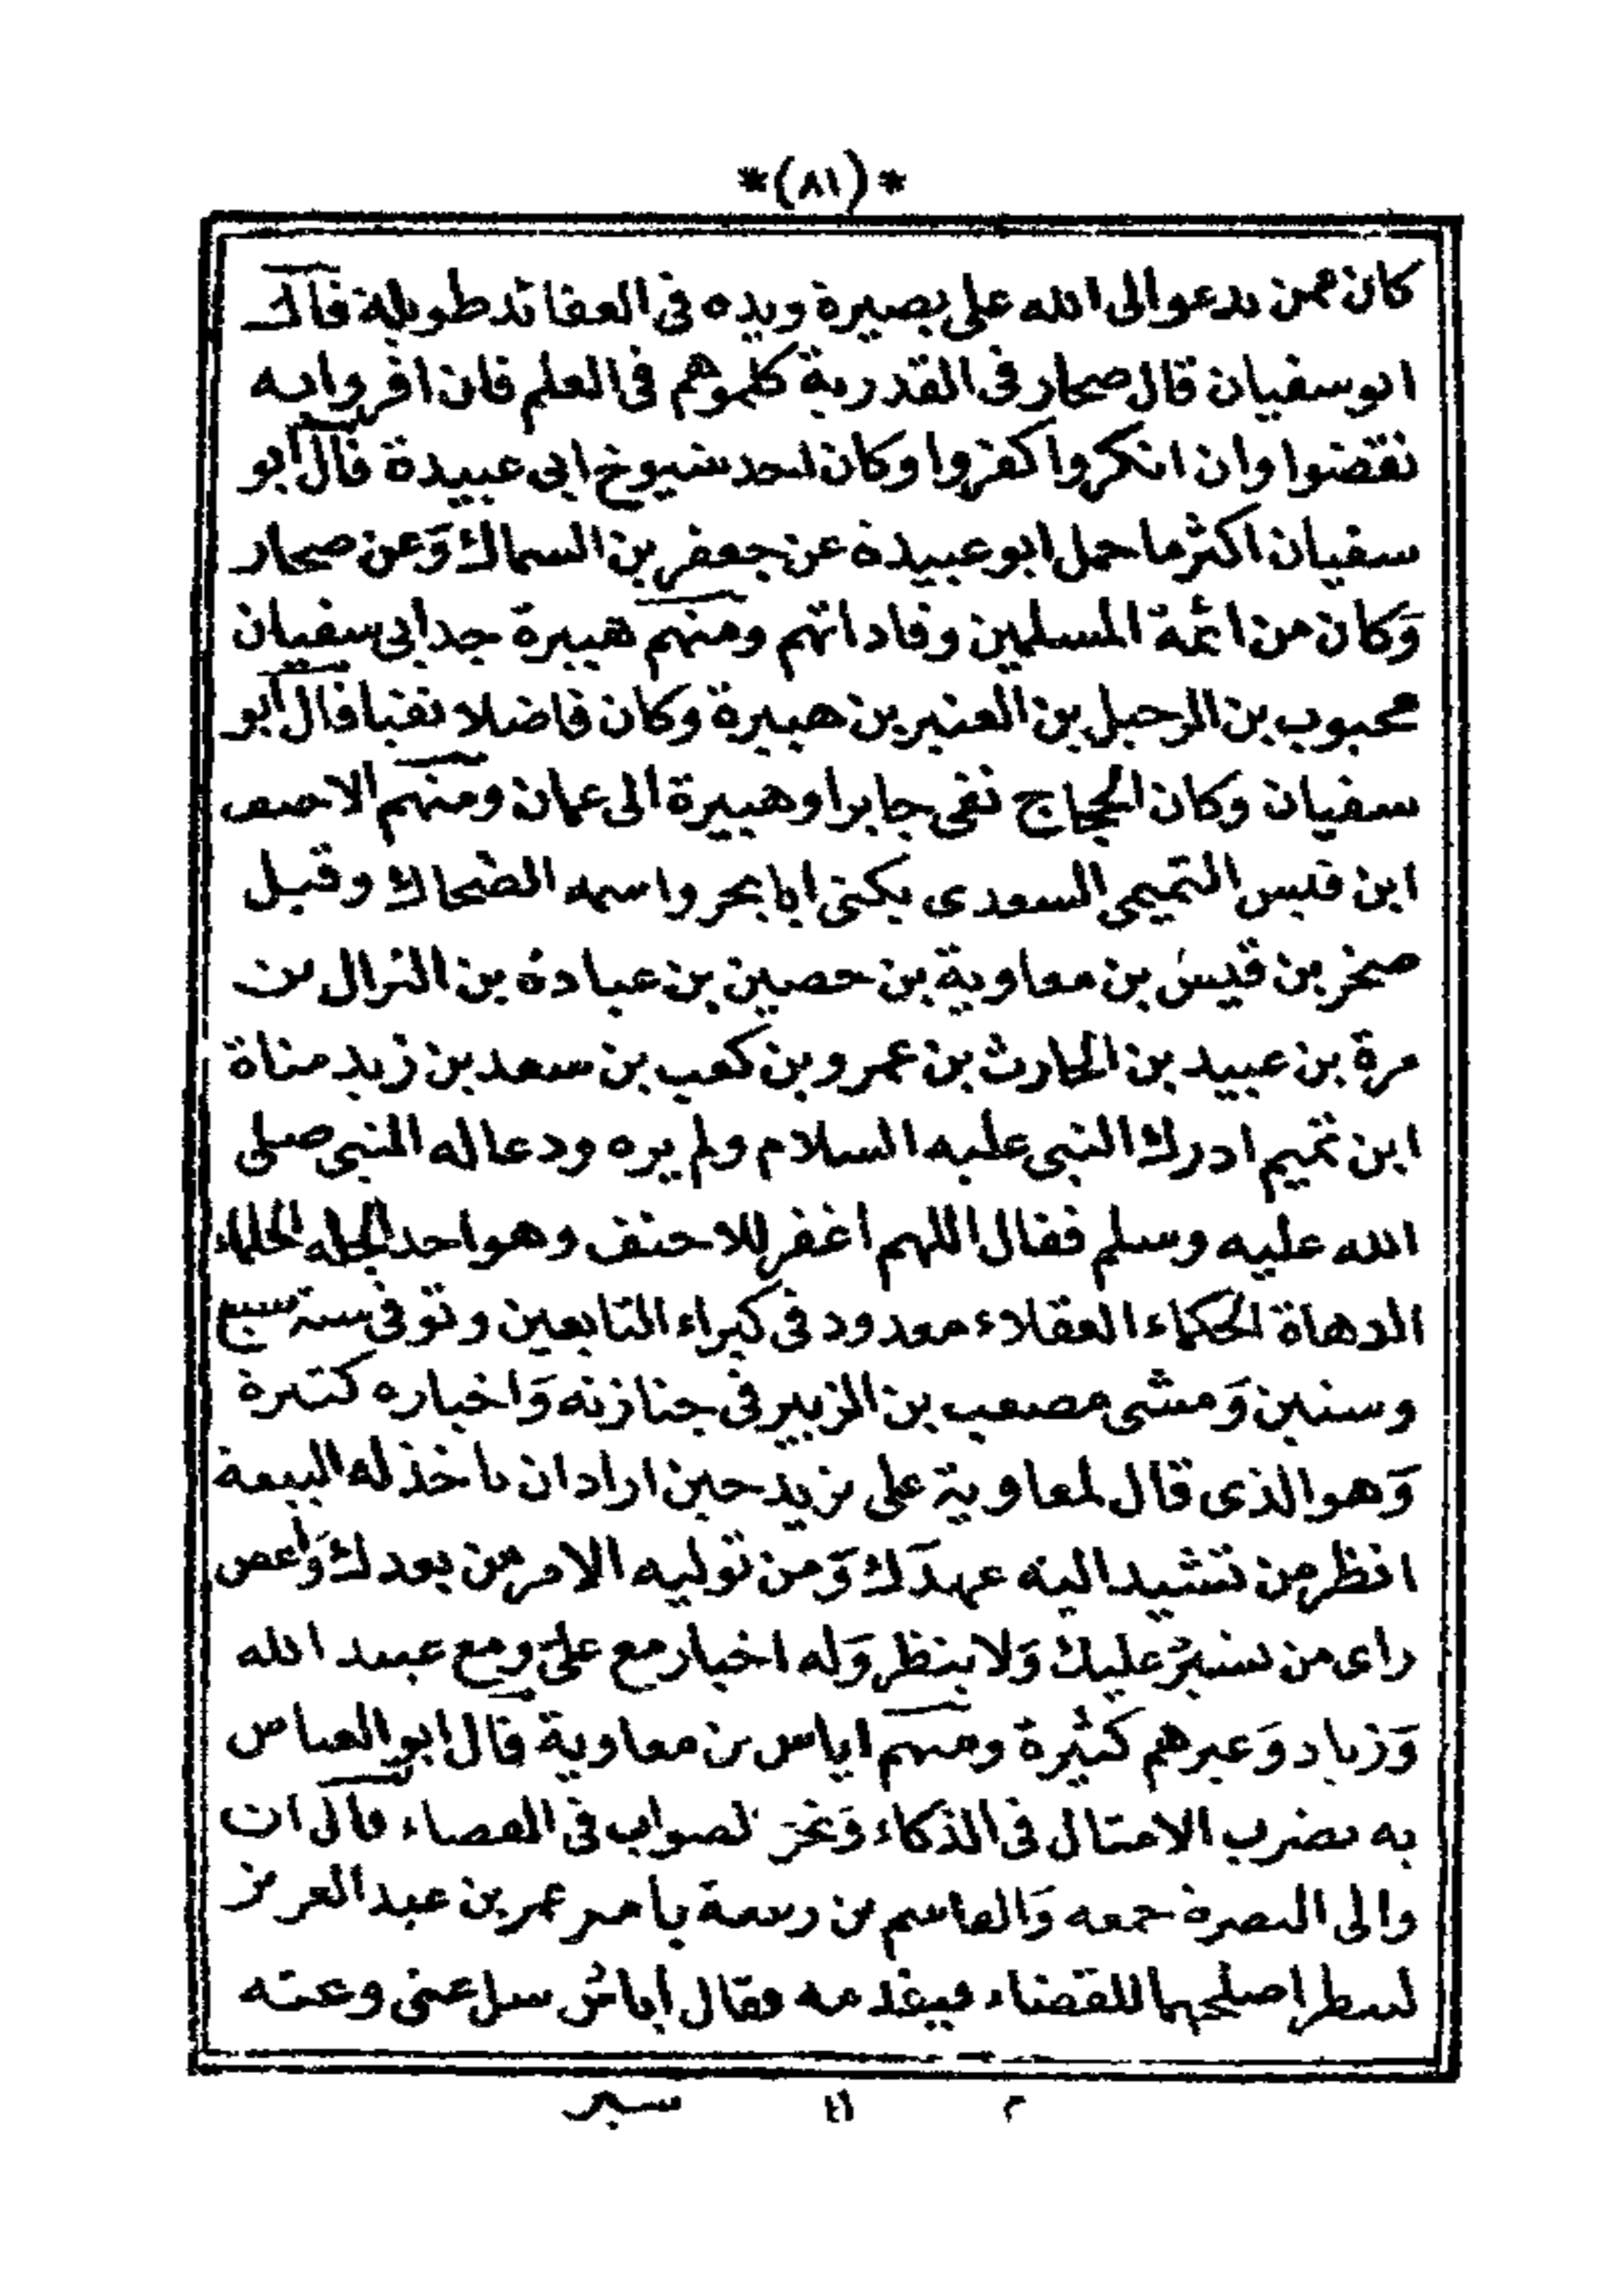 *(٨١)*
كان ممن يدعو الى الله على بصيرة ويده فى العقائد طويلة قال
ابو سفيان قال صحار فى القدرية كلموهم فى العلم فان اقروا به
نقضوا وان انكروا كفروا وكان احد شيوخ ابى عبيدة قال ابو
سفيان اكثر ما حمل ابو عبيدة عن جعفر بن السماك وَعن صحار
وَكان من ائمة المسلمين وقاداتهم ومنهم هبيرة جد ابى سفيان
محبوب بن الرحيل بن العنبر بن هبيرة وكان فاضلا تقيا قال ابو
سفيان وكان الحجاج نفى جابرا وهبيرة الى عمان ومنهم الاحنف
ابن قيس التميمى السعدى يكنى ابا بحر واسمه الضحاك وقيل
صخر بن قيس بن معاوية بن حصين بن عبادة بن النزال بن
مرة بن عبيد بن الحارث بن عمرو بن كعب بن سعد بن زيد مناة
ابن تميم ادرك النبى عليه السلام ولم يره ودعا له النبى صلى
الله عليه وسلم فقال اللهم اغفر للاحنف وهو احد الجله الحلماء
الدهاة الحكماء العقلاء معدود فى كبراء التابعين وتوفى سنة سبع
وستين وَمشى مصعب بن الزبير فى جنازته وَاخباره كثيرة
وَهو الذى قال لمعاوية على يزيد حين اراد ان ياخذ له البيعة
انظر من تشيد اليه عهدك وَمن توليه الامر من بعدك وَاعص
راى من يشير عليك وَلا ينظر وَله اخبار مع علىّ ومع عبيد الله
وَزياد وَغيرهم كثيرة ومنهم اياس بن معاوية قال ابو العباس
به يضرب الامثال فى الذكاء وَتحرّ لصواب فى القضاء قال ان
والى البصرة جمعه وَالقاسم بن ربيعة بامر عمر بن عبد العزيز
لينظر اصلحهما للقضاء فيقدمه فقال اياس سل عنى وعنه
م ١١ سير